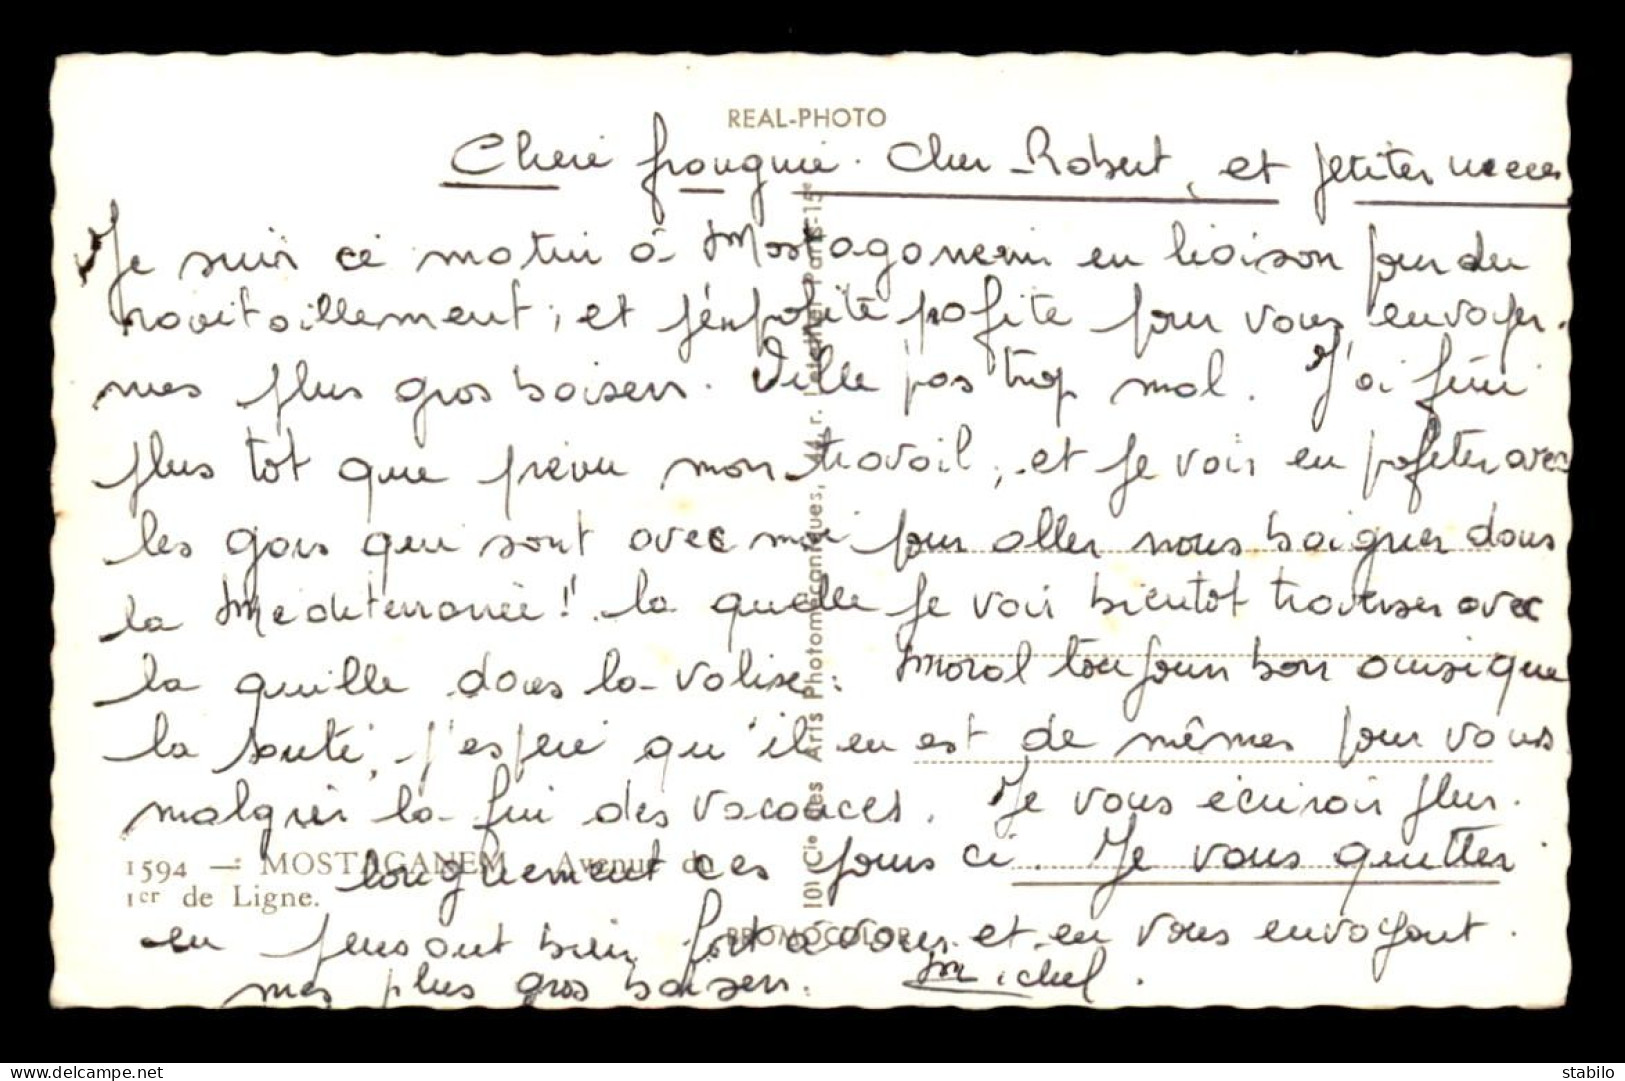 REAL-PHOTO
Cherè frangine. Cher Robert, et petites nieces
Je suis ce matin à Mostaganem en liaison pour du
ravitaillement, et j'en profite pour vous envoyer.
mes plus gros baisers. Ville pas trop mal. J'ai fini
plus tot que prevu mon travail, et je vais en profiter avec
les gars qui sont avec moi pour aller nous baigner dans
la Mediterranée! la quelle je vais bientôt traverser avec
la quille dans la valise. Moral toujours bon ainsi que
la santé, j'espere qu'il en est de mêmes pour vous
malgrés la fin des vacances. Je vous ecrirais plus.
longuement ces jours ci. Je vous quitter
en pensant bien fort a vous et en vous envoyant.
mes plus gros baisers. Michel.
1594 — MOSTAGANEM Avenue du
1er de Ligne.
101 Cie des Arts Photomécaniques, 44, r. Letellier Paris-15e
PROMOCOLOR
stabilo